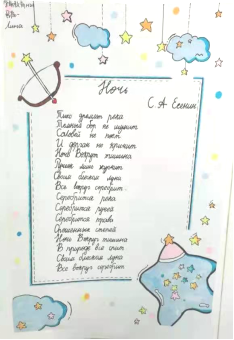 Ночь
С. А. Есенин
Тихо дремлет река
Темный бор не шумит
Соловей не поет
И дергач не кричит
Ночь Вокруг тишина
Ручей лишь журчит
Своим блеском луна
Все вокруг серебрит.
Серебрится река
Серебрится ручей
Серебрится трава
Орошенных степей
Ночь Вокруг тишина
В природе все спит.
Своим блеском луна
Все вокруг серебрит